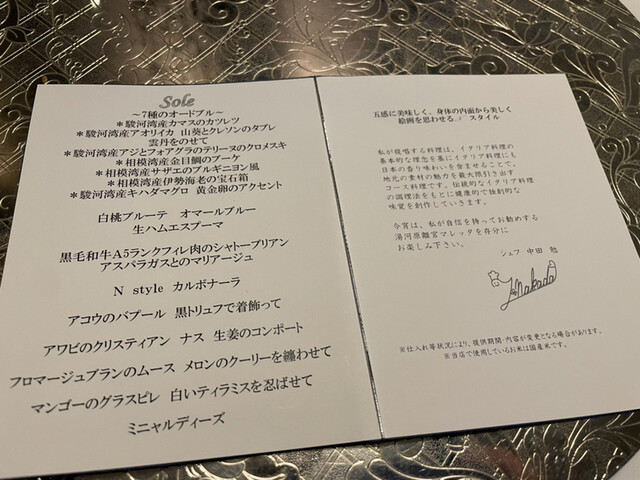 Sole
～7種のオードブル～
＊駿河湾産カマスのカツレツ
＊駿河湾産アオリイカ 山葵とクレソンのタブレ
雲丹をのせて
＊駿河湾産アジとフォアグラのテリーヌのクロメスキ
＊相模湾産金目鯛のブーケ
＊相模湾産サザエのブルギニヨン風
＊相模湾産伊勢海老の宝石箱
＊駿河湾産キハダマグロ 黄金卵のアクセント
白桃ブルーテ オマールブルー
生ハムエスプーマ
黒毛和牛A5ランクフィレ肉のシャトーブリアン
アスパラガスとのマリアージュ
N style カルボナーラ
アコウのバプール 黒トリュフで着飾って
アワビのクリスティアン ナス 生姜のコンポート
フロマージュブランのムース メロンのクーリーを纏わせて
マンゴーのグラスピレ 白いティラミスを忍ばせて
ミニャルディーズ
五感に美味しく、身体の内面から美しく
絵画を思わせる スタイル
私が提唱する料理は、イタリア料理の
基本的な理念を基にイタリア料理にも
日本の香り味わいを含ませることで、
地元の素材の魅力を最大限引き出す
コース料理です。伝統的なイタリア料理
の調理法をもとに健康的で独創的な
味覚を創作していきます。
今宵は、私が自信を持ってお勧めする
湯河原離宮マレッタを存分に
お楽しみ下さい。
シェフ 中田 勉
※仕入れ等状況により、提供期間・内容が変更となる場合があります。
※当店で使用しているお米は国産米です。